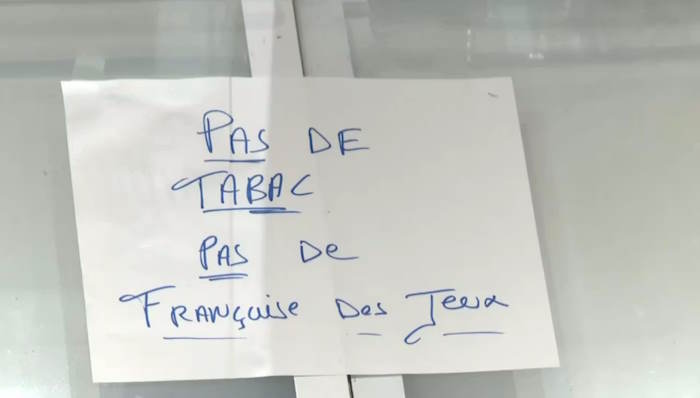 PAS DE
TABAC
PAS De
FRANÇaise Des Jeux